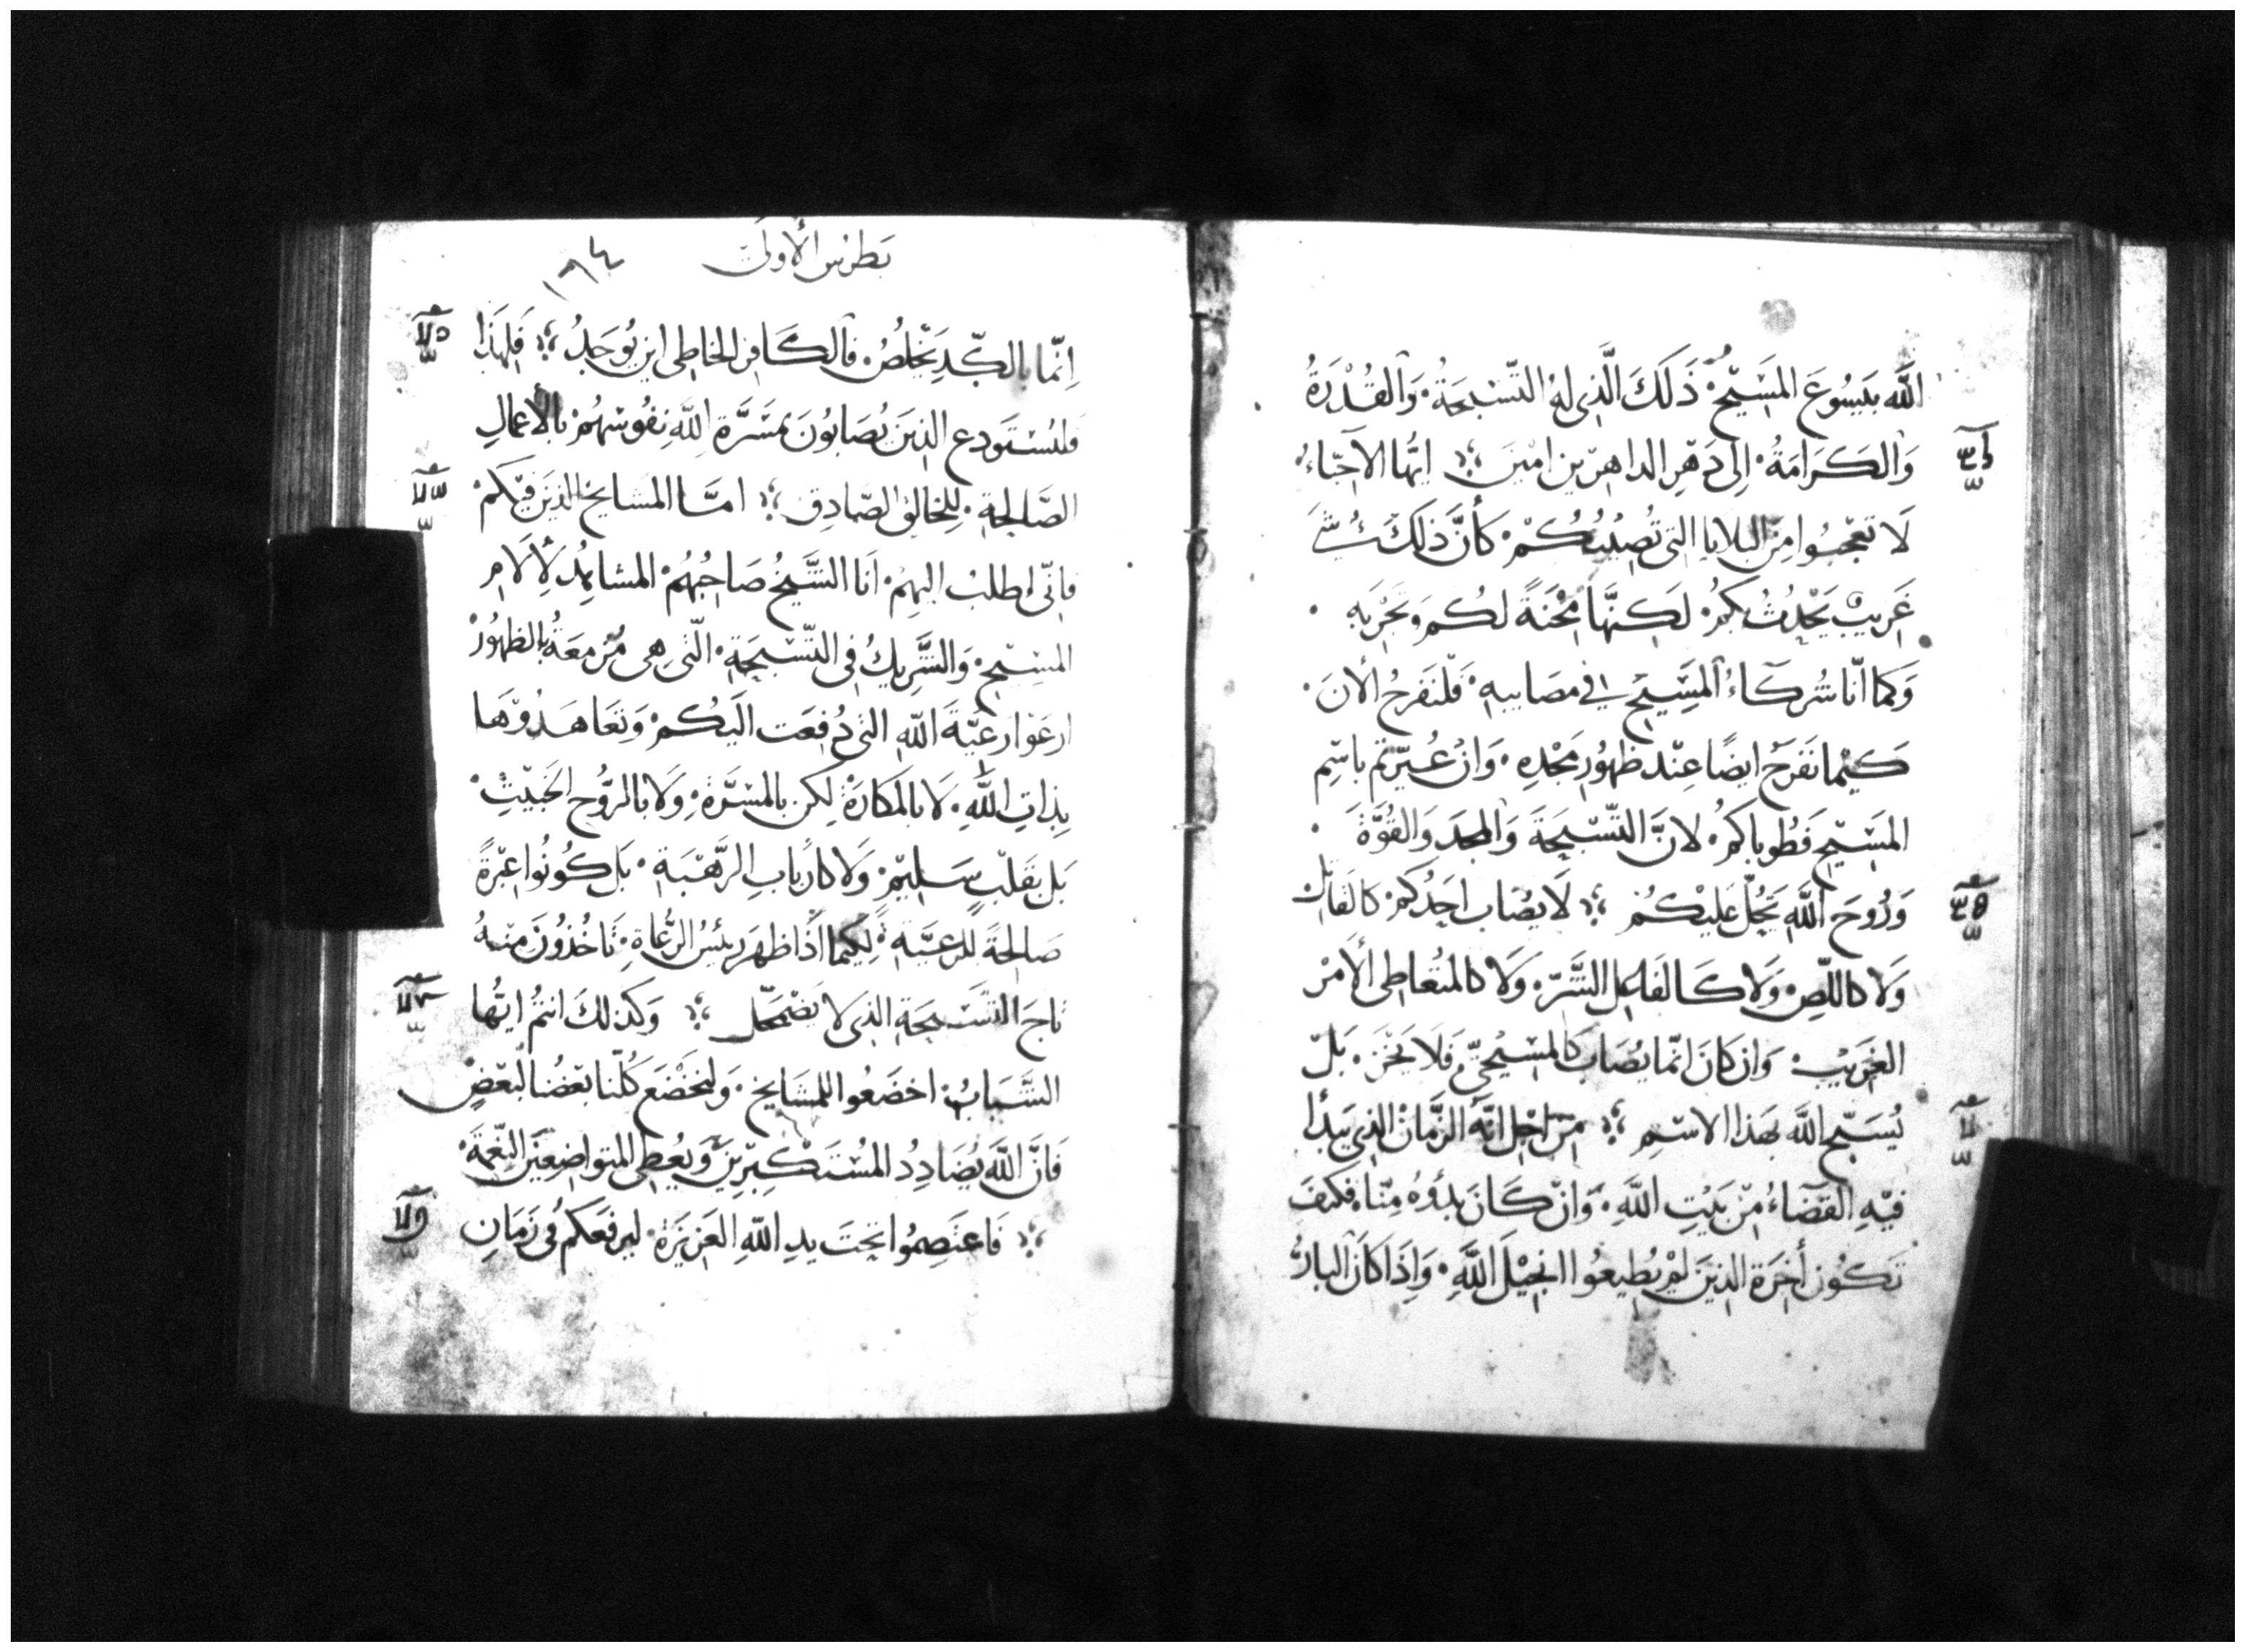 اللَّه بيَسُوعَ المَسَيْحِ ذَلَكَ الَّذِى لهُ التّسْبحَةُ وَالقُدْرَةُ
وَالكَرَامَةُ إلى دَهْرِ الداهرّين امْينَ ايُّها الآحِبّاءُ
لَا تعجبُوا مِنَ البلايا التى تُصِيْبُكُمْ كَأَنَّ ذلِكَ شَىْ
غَريبٌ يَحْدُثُ بكمُ لَكنهَّا مِحْنَةً لكُم وَتَجْرَبَهِ
وَكما انّا شُركآءُ المسَيْحِ فى مصَايبهِ فَلْنَفرحُ الأنَ
كيْما نَفرَحُ ايضًا عنْد ظهُورِ مَجْدهِ وَانْ عُيّرتمْ باسْمِ
المَسَيْحِ فَطُوباكمُ لانَّ التّسْبيحَةَ وَالمجدَ وَالقُوَّةَ
وَرُوحَ اللَّهِ يَحُلّ عَليْكُمْ لَا يصُاب احَدُكمْ كالقَاتل
وَلا كاللّصِ وَلا كَالفَاعل الشَّرّ وَلا كالمتُعاطى الأمْر
الغرَيْب وَان كانَ انمّا يصُابَ كالمسَيْحىّ فَلا يخْزَ بَلْ
يُسَبّح اللَّه بهَذا الاسْمِ منْ اجْل انَّهَ الزَّمانْ الذِى يَبدأ
فيْهِ القضَاءُ منْ بَيْتِ اللَّهِ وَانْ كَانَ بدؤهُ مِنّا فكيفَ
تَكُون أخرَة الذينَ لمْ يُطيعُوا انجيْلَ اللَّهِ وَإذَا كانَ البارُّ
بَطرسْ الأولَى
١٦٤
إنّما بالكّدِ يَخْلصُ فالكَافر الخاطى اين يُوجَدُ فَلِهَذا
فليسْتَودع الذينَ يُصَابُونَ بمَسَرَّةِ اللَّهِ نفُوسَهُمْ بالأعمالِ
الصَّالحِةِ للِخَالق الصّادِق امَّا المشايخ الذينَ فيْكمْ
فانّى اطلبُ اليهِمْ انَا الشَّيخُ صَاحبُهُمْ المشاهِدُ لألَامِ
المسِيْحِ وَالشَّرِيكُ فى التّسْبيحَةِ الّتى هى مُزْمعَةُ بالظهُورْ
ارعَوْا رعيّةَ اللّهِ التى دُفِعَت اليَكُمْ وَتعَاهَدُوْهَا
بِذاتِ اللَّهِ لَا بالمَكارَة لكن بالمسَرَّةِ وَلا بالرُّوح الخَبيْثْ
بَل بقَلْبٍ سَليْمْ وَلا كأربابِ الرَّهْبَةِ بَل كُونُوا عبْرةً
صَالحةً للرعيَّةِ لكيما اذَا ظهرَ رئيسُ الرُّعاةِ تَاخُذوُنَ منهُ
تَاجَ التسْبحَةِ الذى لَا يَضْمَحّل وَكذلكَ انتمُ ايُّها
الشَّبابُ اخضَعُوا للمشَايخ وَلنخْضَع كُلّنا بعْضُنا لبَعْضٍ
فَانَّ اللَّه يُضَادِدُ المُسْتَكْبِرّيْنَ وَيُعْطِى المتواضِعَيْنَ النّعْمَةَ
فَاعتَصِمُوا تحتَ يدِ اللّهِ العَزيزَة ليرفعَكمُ فى زَمَانِ